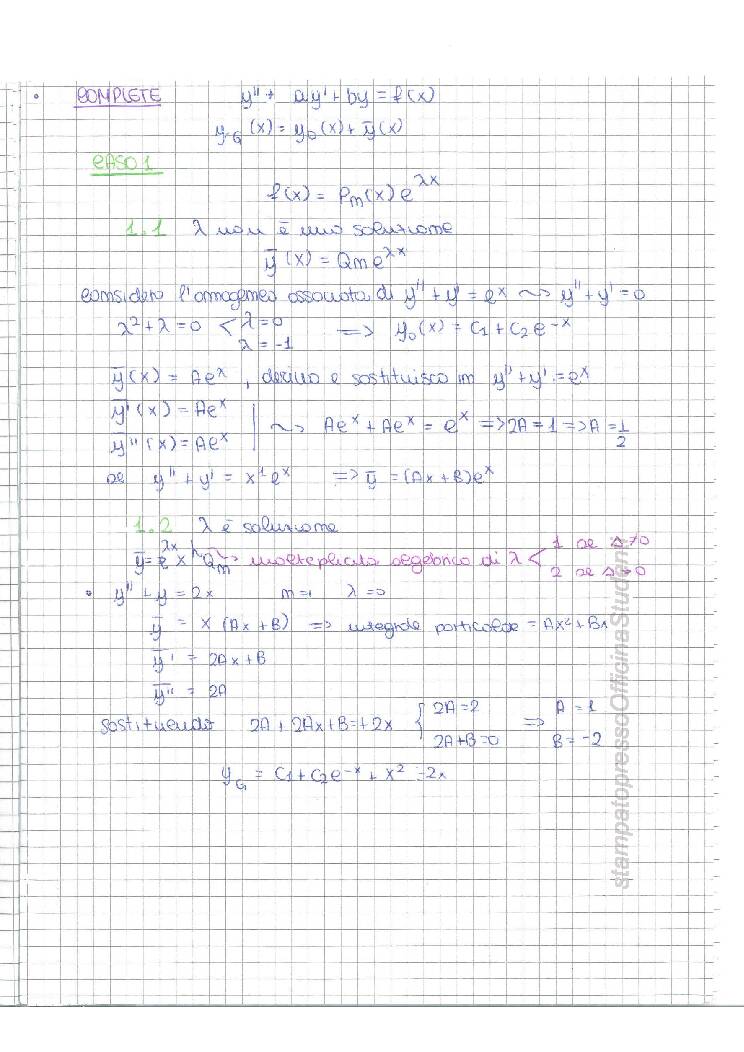 COMPLETE y'' + ay' + by = f(x)
y_G(x) = y_0(x) + ȳ(x)
CASO 1
f(x) = P_m(x) e^{λx}
1.1 λ non è una soluzione
ȳ(x) = Q_m e^{λx}
considero l'omogenea associata di y'' + y' = e^x ⇝ y'' + y' = 0
λ² + λ = 0 < λ = 0 ⟹ y_0(x) = C_1 + C_2 e^{-x}
λ = -1
ȳ(x) = Ae^x, derivo e sostituisco in y'' + y' = e^x
ȳ'(x) = Ae^x
ȳ''(x) = Ae^x ⇝ Ae^x + Ae^x = e^x ⟹ 2A = 1 ⟹ A = 1/2
se y'' + y' = x^1 e^x ⟹ ȳ = (Ax + B)e^x
1.2 λ è soluzione
ȳ = e^{λx} x^h Q_m ⇝ molteplicità algebrica di λ < 1 se Δ ≠ 0
2 se Δ = 0
• y'' + y = 2x m = 1 λ = 0
ȳ = x (Ax + B) ⟹ integrale particolare = Ax² + Bx
ȳ' = 2Ax + B
ȳ'' = 2A
sostituendo 2A + 2Ax + B = + 2x { 2A = 2 ⟹ A = 1
2A + B = 0 B = -2
y_G = C_1 + C_2 e^{-x} + x² - 2x
stampatopressoOfficinaStudenti